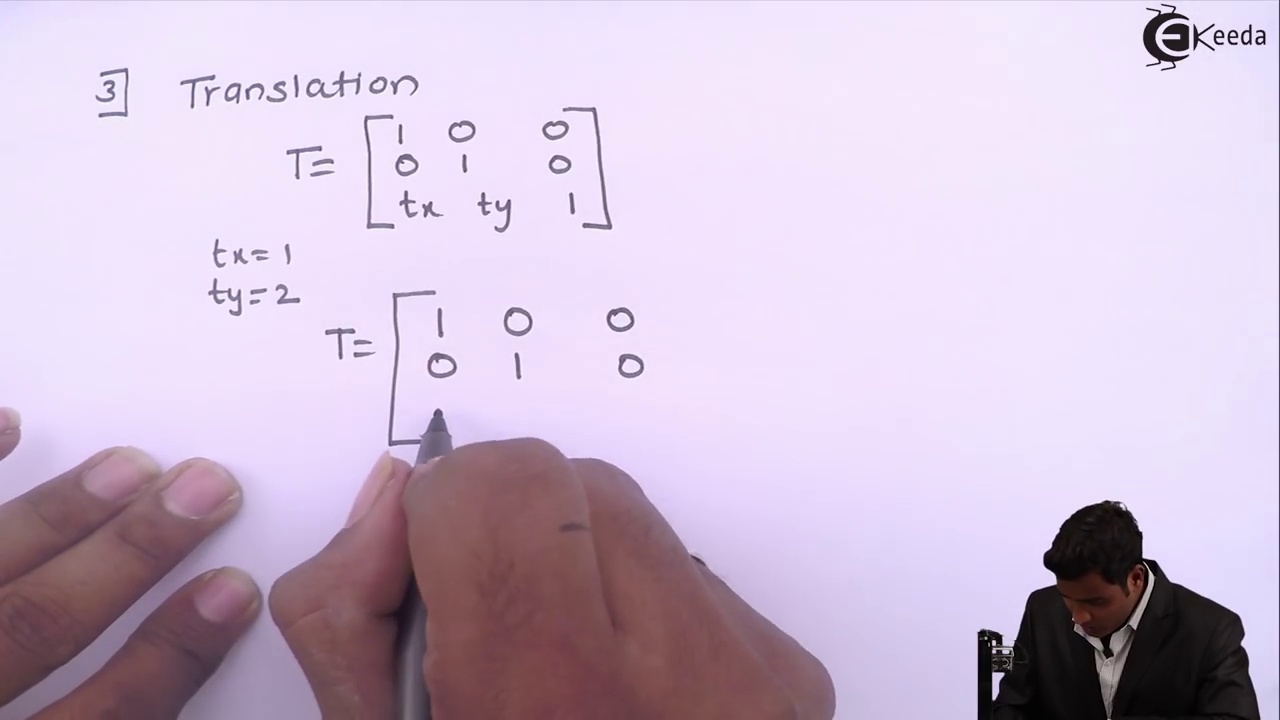 EKeeda
3] Translation
T= [1 0 0
0 1 0
tx ty 1]
tx=1
ty=2
T= [1 0 0
0 1 0